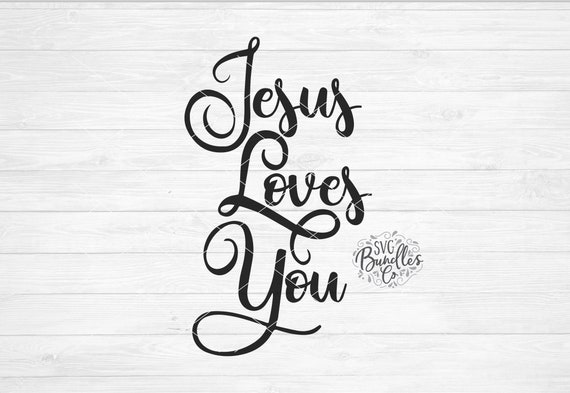 Jesus
Loves
You
SVG
Bundles
Co.